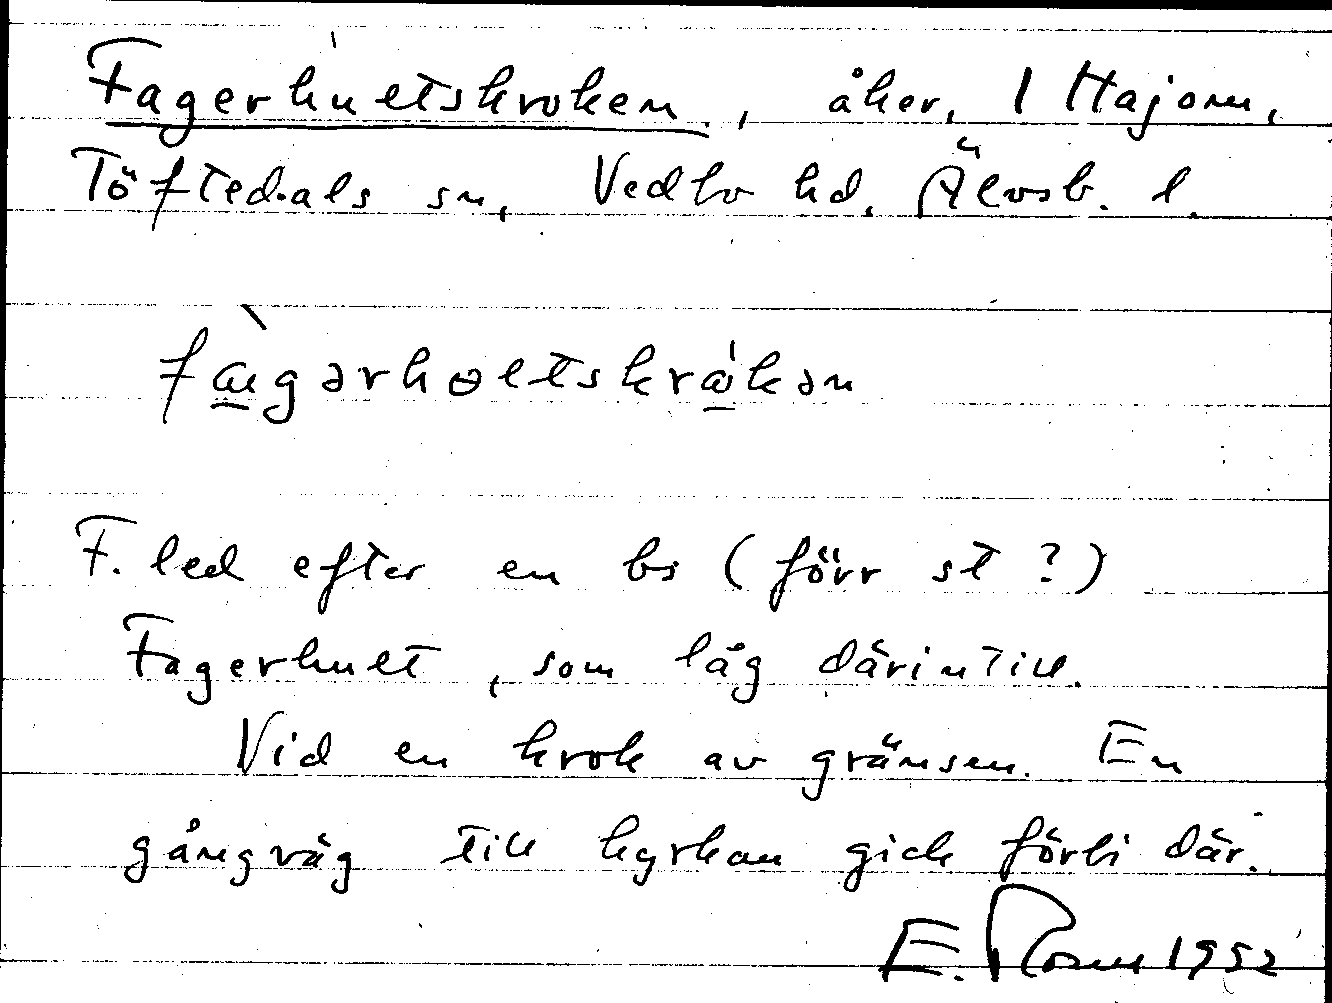 Fagerhultskroken, åker, 1 Hajom,
Töftedals sn, Vedbo hd, Älvsb. l.
fa̲gərhɵltskrɷ̲kən
F. led efter en bs (förr st?)
Fagerhult, som låg därintill.
Vid en krok av gränsen. En
gångväg till kyrkan gick förbi där.
E. Rosén 1952